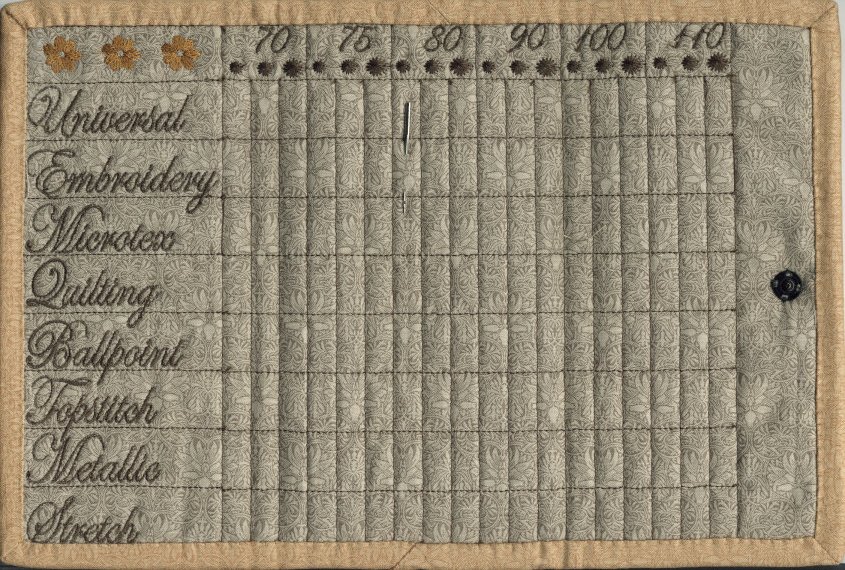 70 75 80 90 100 110
Universal
Embroidery
Microtex
Quilting
Ballpoint
Topstitch
Metallic
Stretch